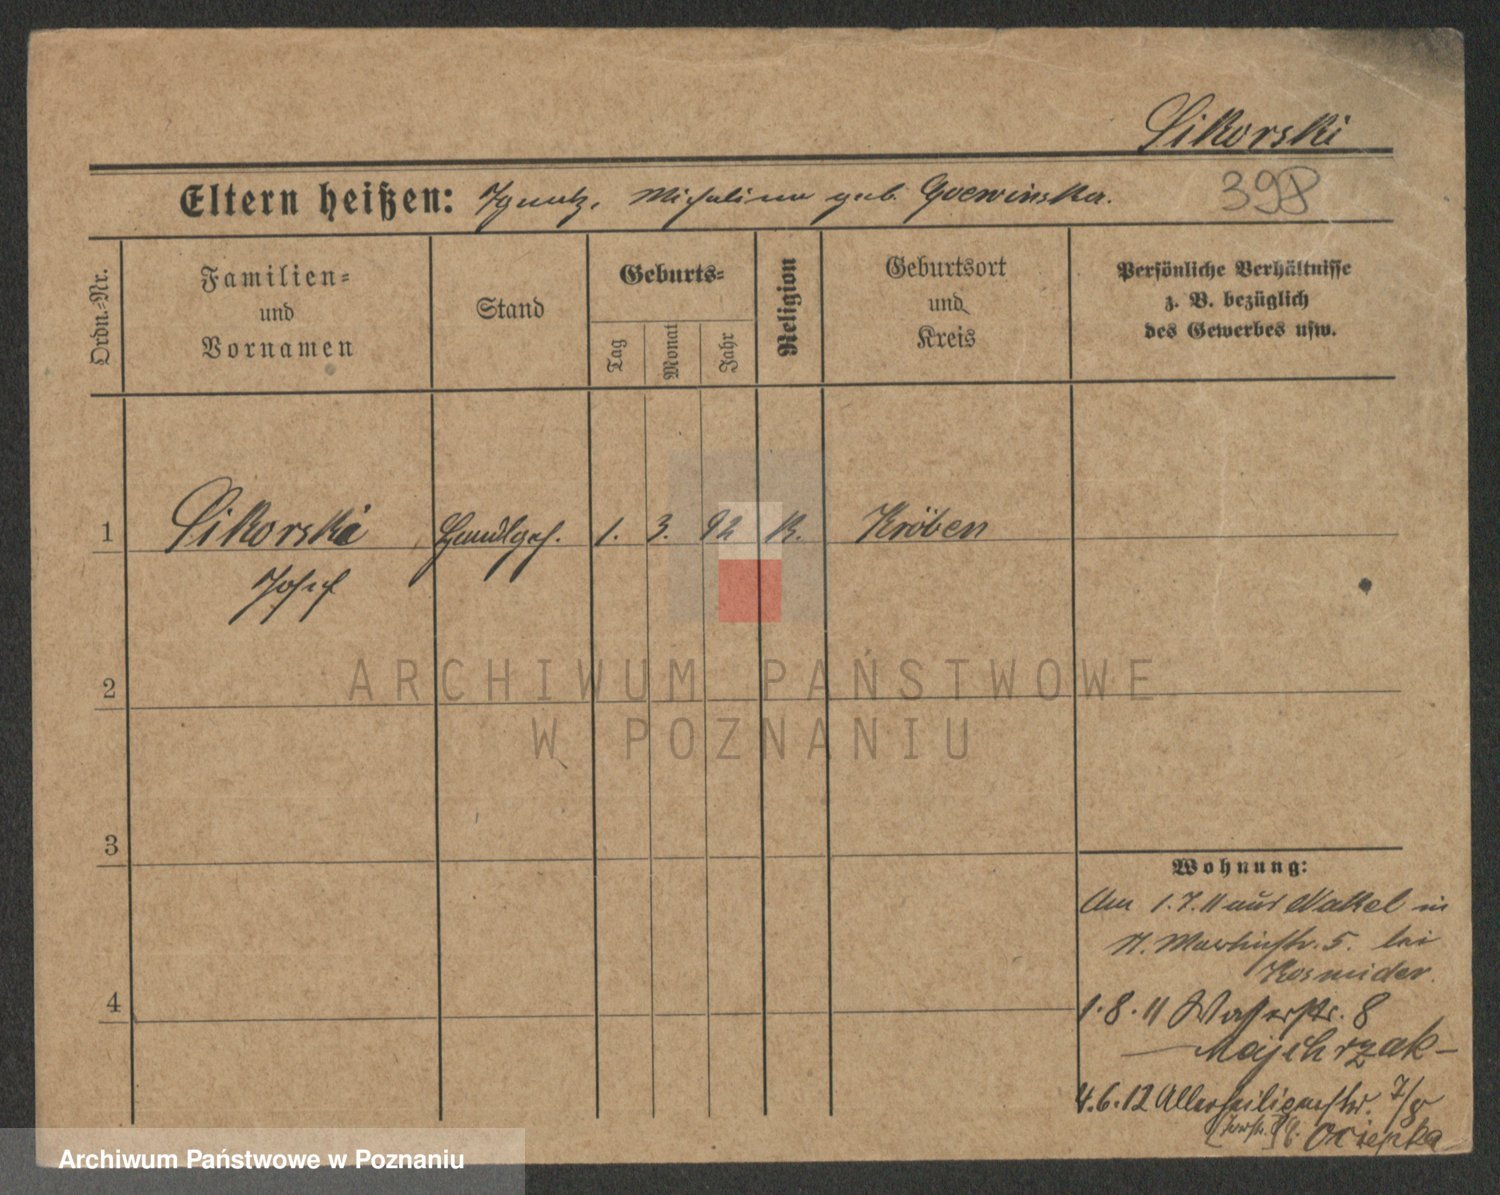 Sikorski
Eltern heißen: Ignatz, Michalina geb. Goerwinska.
398
Ordn.-Nr.
Familien-
und
Vornamen
Stand
Geburts-
Tag
Monat
Jahr
Religion
Geburtsort
und
Kreis
Persönliche Verhältnisse
z. B. bezüglich
des Gewerbes usw.
1 Sikorski Handlgeh. 1. 3. 92 K. Kröben
Josef
2
3
4
Wohnung:
Am 1.7.11 aus Nakel in
St. Martinstr. 5. bei
Kosmider.
1.8.11 Wasserstr. 8
Majchrzak
4.6.12 Allerheiligenstr. 7/8
b. Osiepka
ARCHIWUM PAŃSTWOWE
W POZNANIU
Archiwum Państwowe w Poznaniu